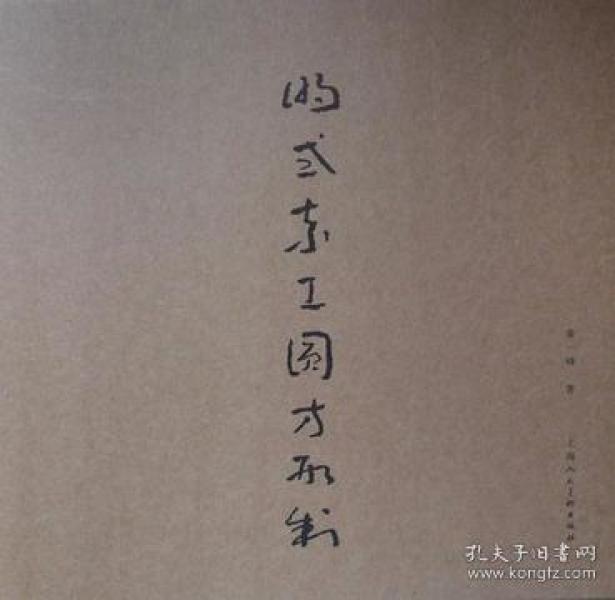 明式素工圆方形制
著
上海人民美术出版社
孔夫子旧书网
www.kongfz.com